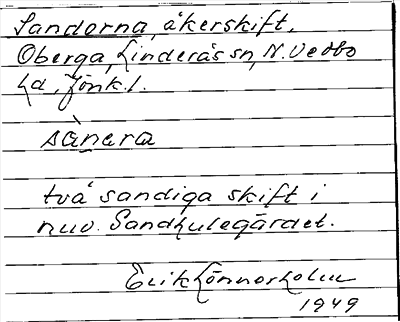 Sanderna, åkerskift,
Oberga, Linderås sn, N. Vedbo
hd, Jönk. l.
sànera
två sandiga skift i
nuv. Sandkulegärdet.
Erik Lönnerholm
1949